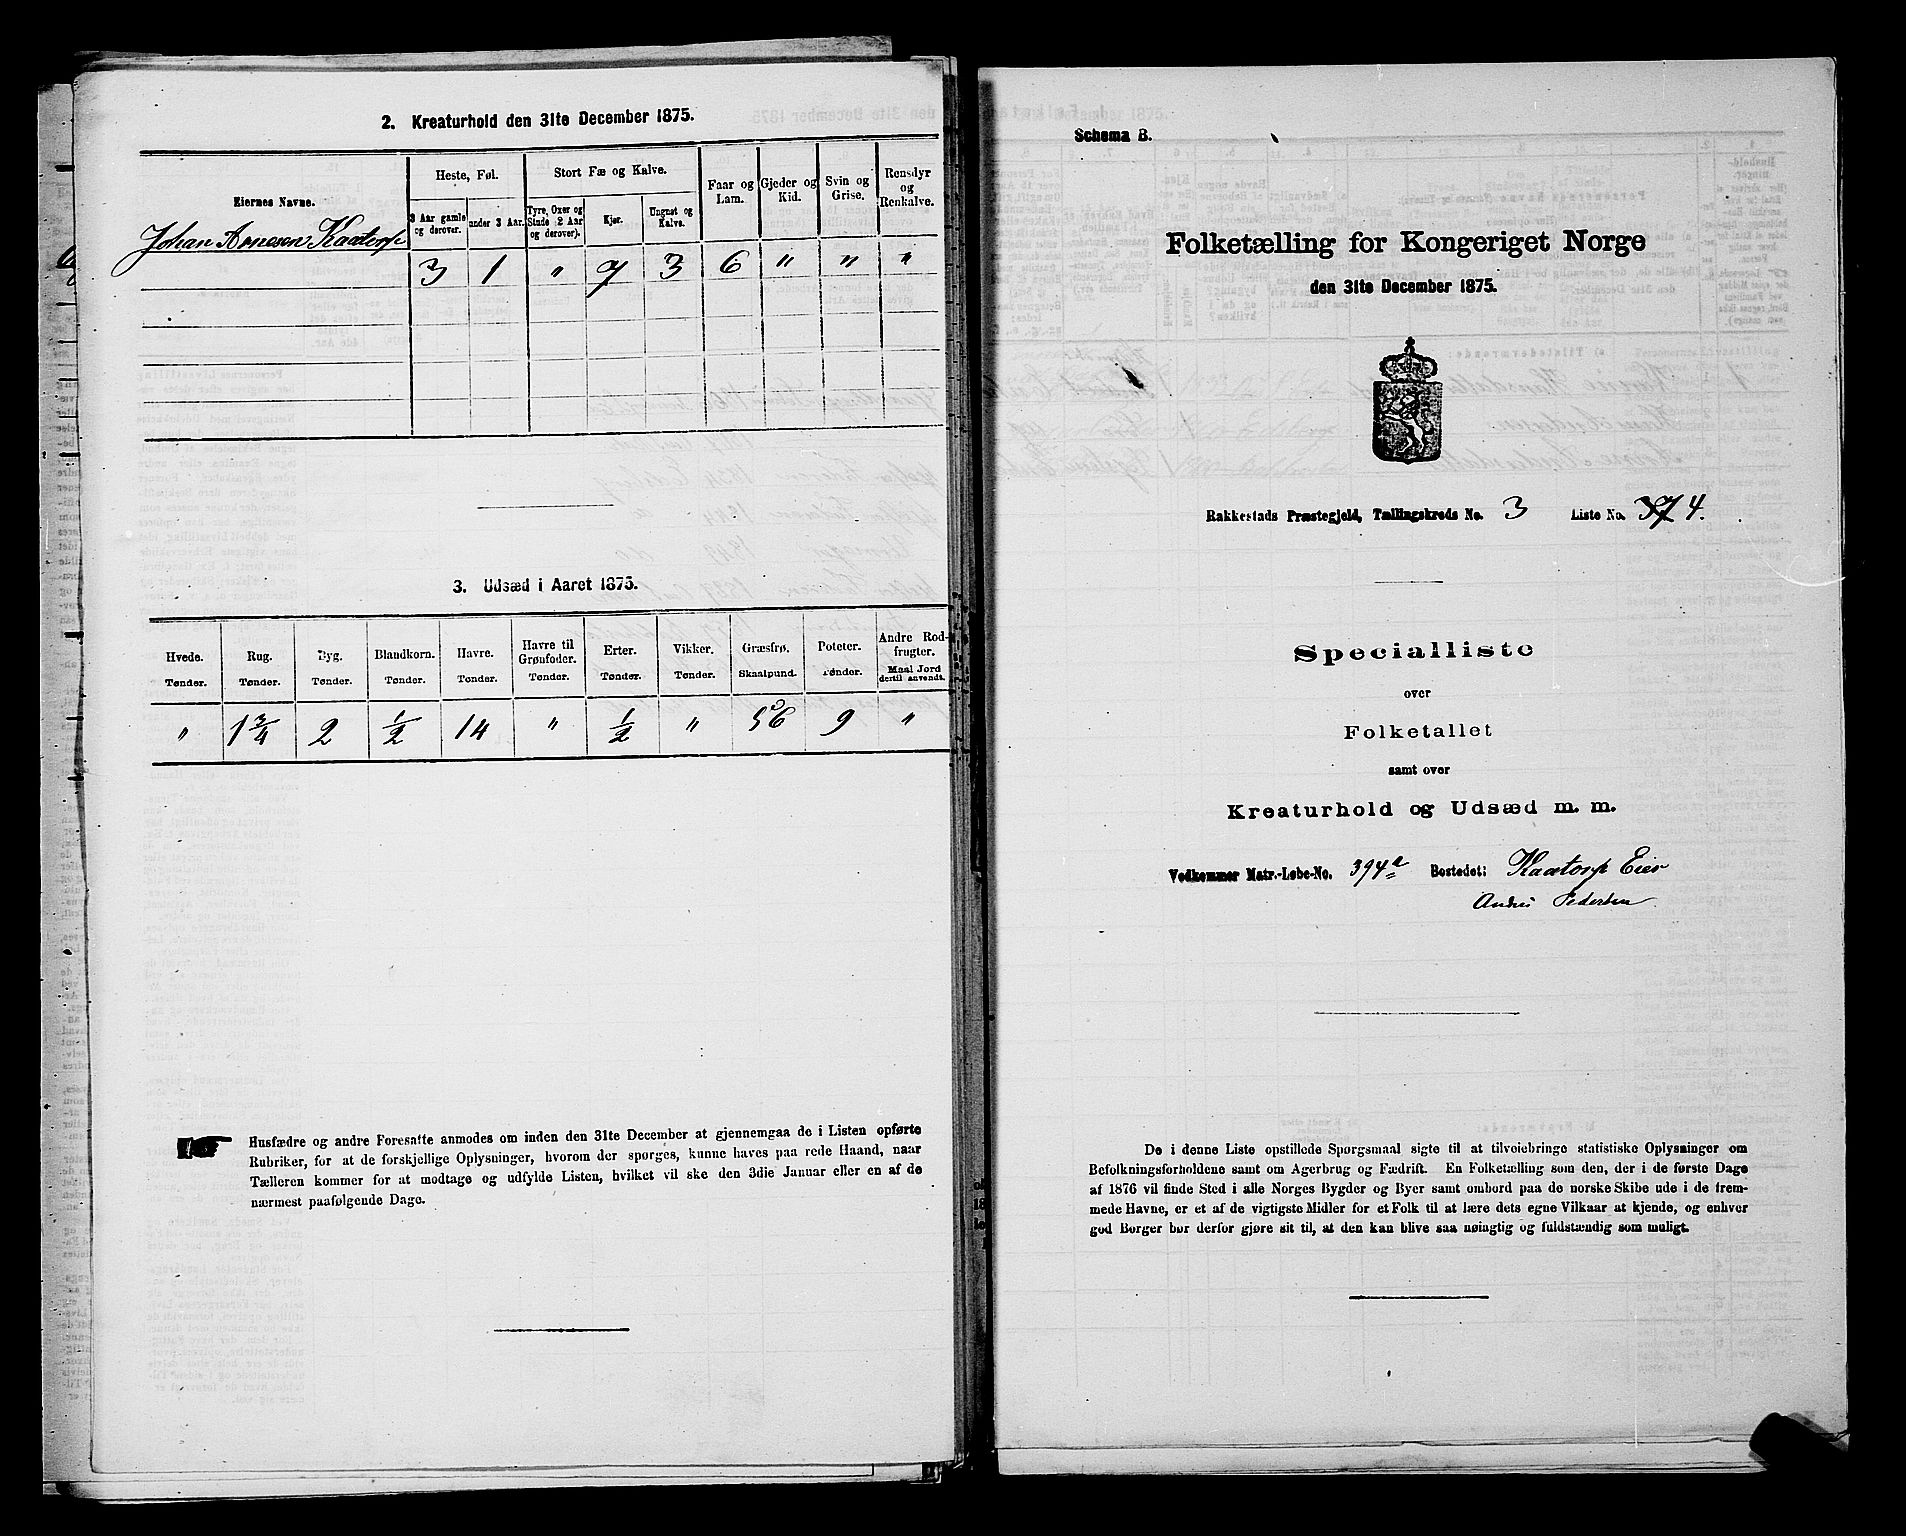 2. Kreaturhold den 31te December 1875.
Eiernes Navne.
Heste, Føl.
3 Aar gamle og derover.
under 3 Aar.
Stort Fæ og Kalve.
Tyre, Oxer og Stude (2 Aar og derover).
Kjør.
Ungnøt og Kalve.
Faar og Lam.
Gjeder og Kid.
Svin og Grise.
Rensdyr og Renkalve.
Johan Arnesen Kaatorp
3 1 " 7 3 6 " " "
3. Udsæd i Aaret 1875.
Hvede. Rug. Byg. Blandkorn. Havre. Havre til Grønfoder. Erter. Vikker. Græsfrø. Poteter. Andre Rodfrugter.
Tønder. Tønder. Tønder. Tønder. Tønder. Tønder. Tønder. Tønder. Skaalpund. Tønder. Maal Jord dertil anvendt.
" 1 3/4 2 1/2 14 " 1/2 " 56 9 "
Husfædre og andre Foresatte anmodes om inden den 31te December at gjennemgaa de i Listen opførte
Rubriker, for at de forskjellige Oplysninger, hvorom der spørges, kunne haves paa rede Haand, naar
Tælleren kommer for at modtage og udfylde Listen, hvilket vil ske den 3die Januar eller en af de
nærmest paafølgende Dage.
Schema B.
Folketælling for Kongeriget Norge
den 31te December 1875.
Rakkestads Præstegjeld, Tællingskreds No. 3 Liste No. 4.
Specialliste
over
Folketallet
samt over
Kreaturhold og Udsæd m. m.
Vedkommer Matr.-Løbe-No. 394a Bostedet: Kaatorp Eier
Andrs Pedersen
De i denne Liste opstillede Spørgsmaal sigte til at tilveiebringe statistiske Oplysninger om
Befolkningsforholdene samt om Agerbrug og Fædrift. En Folketælling som den, der i de første Dage
af 1876 vil finde Sted i alle Norges Bygder og Byer samt ombord paa de norske Skibe ude i de frem-
mede Havne, er et af de vigtigste Midler for et Folk til at lære dets egne Vilkaar at kjende, og enhver
god Borger bør derfor gjøre sit til, at den kan blive saa nøiagtig og fuldstændig som muligt.